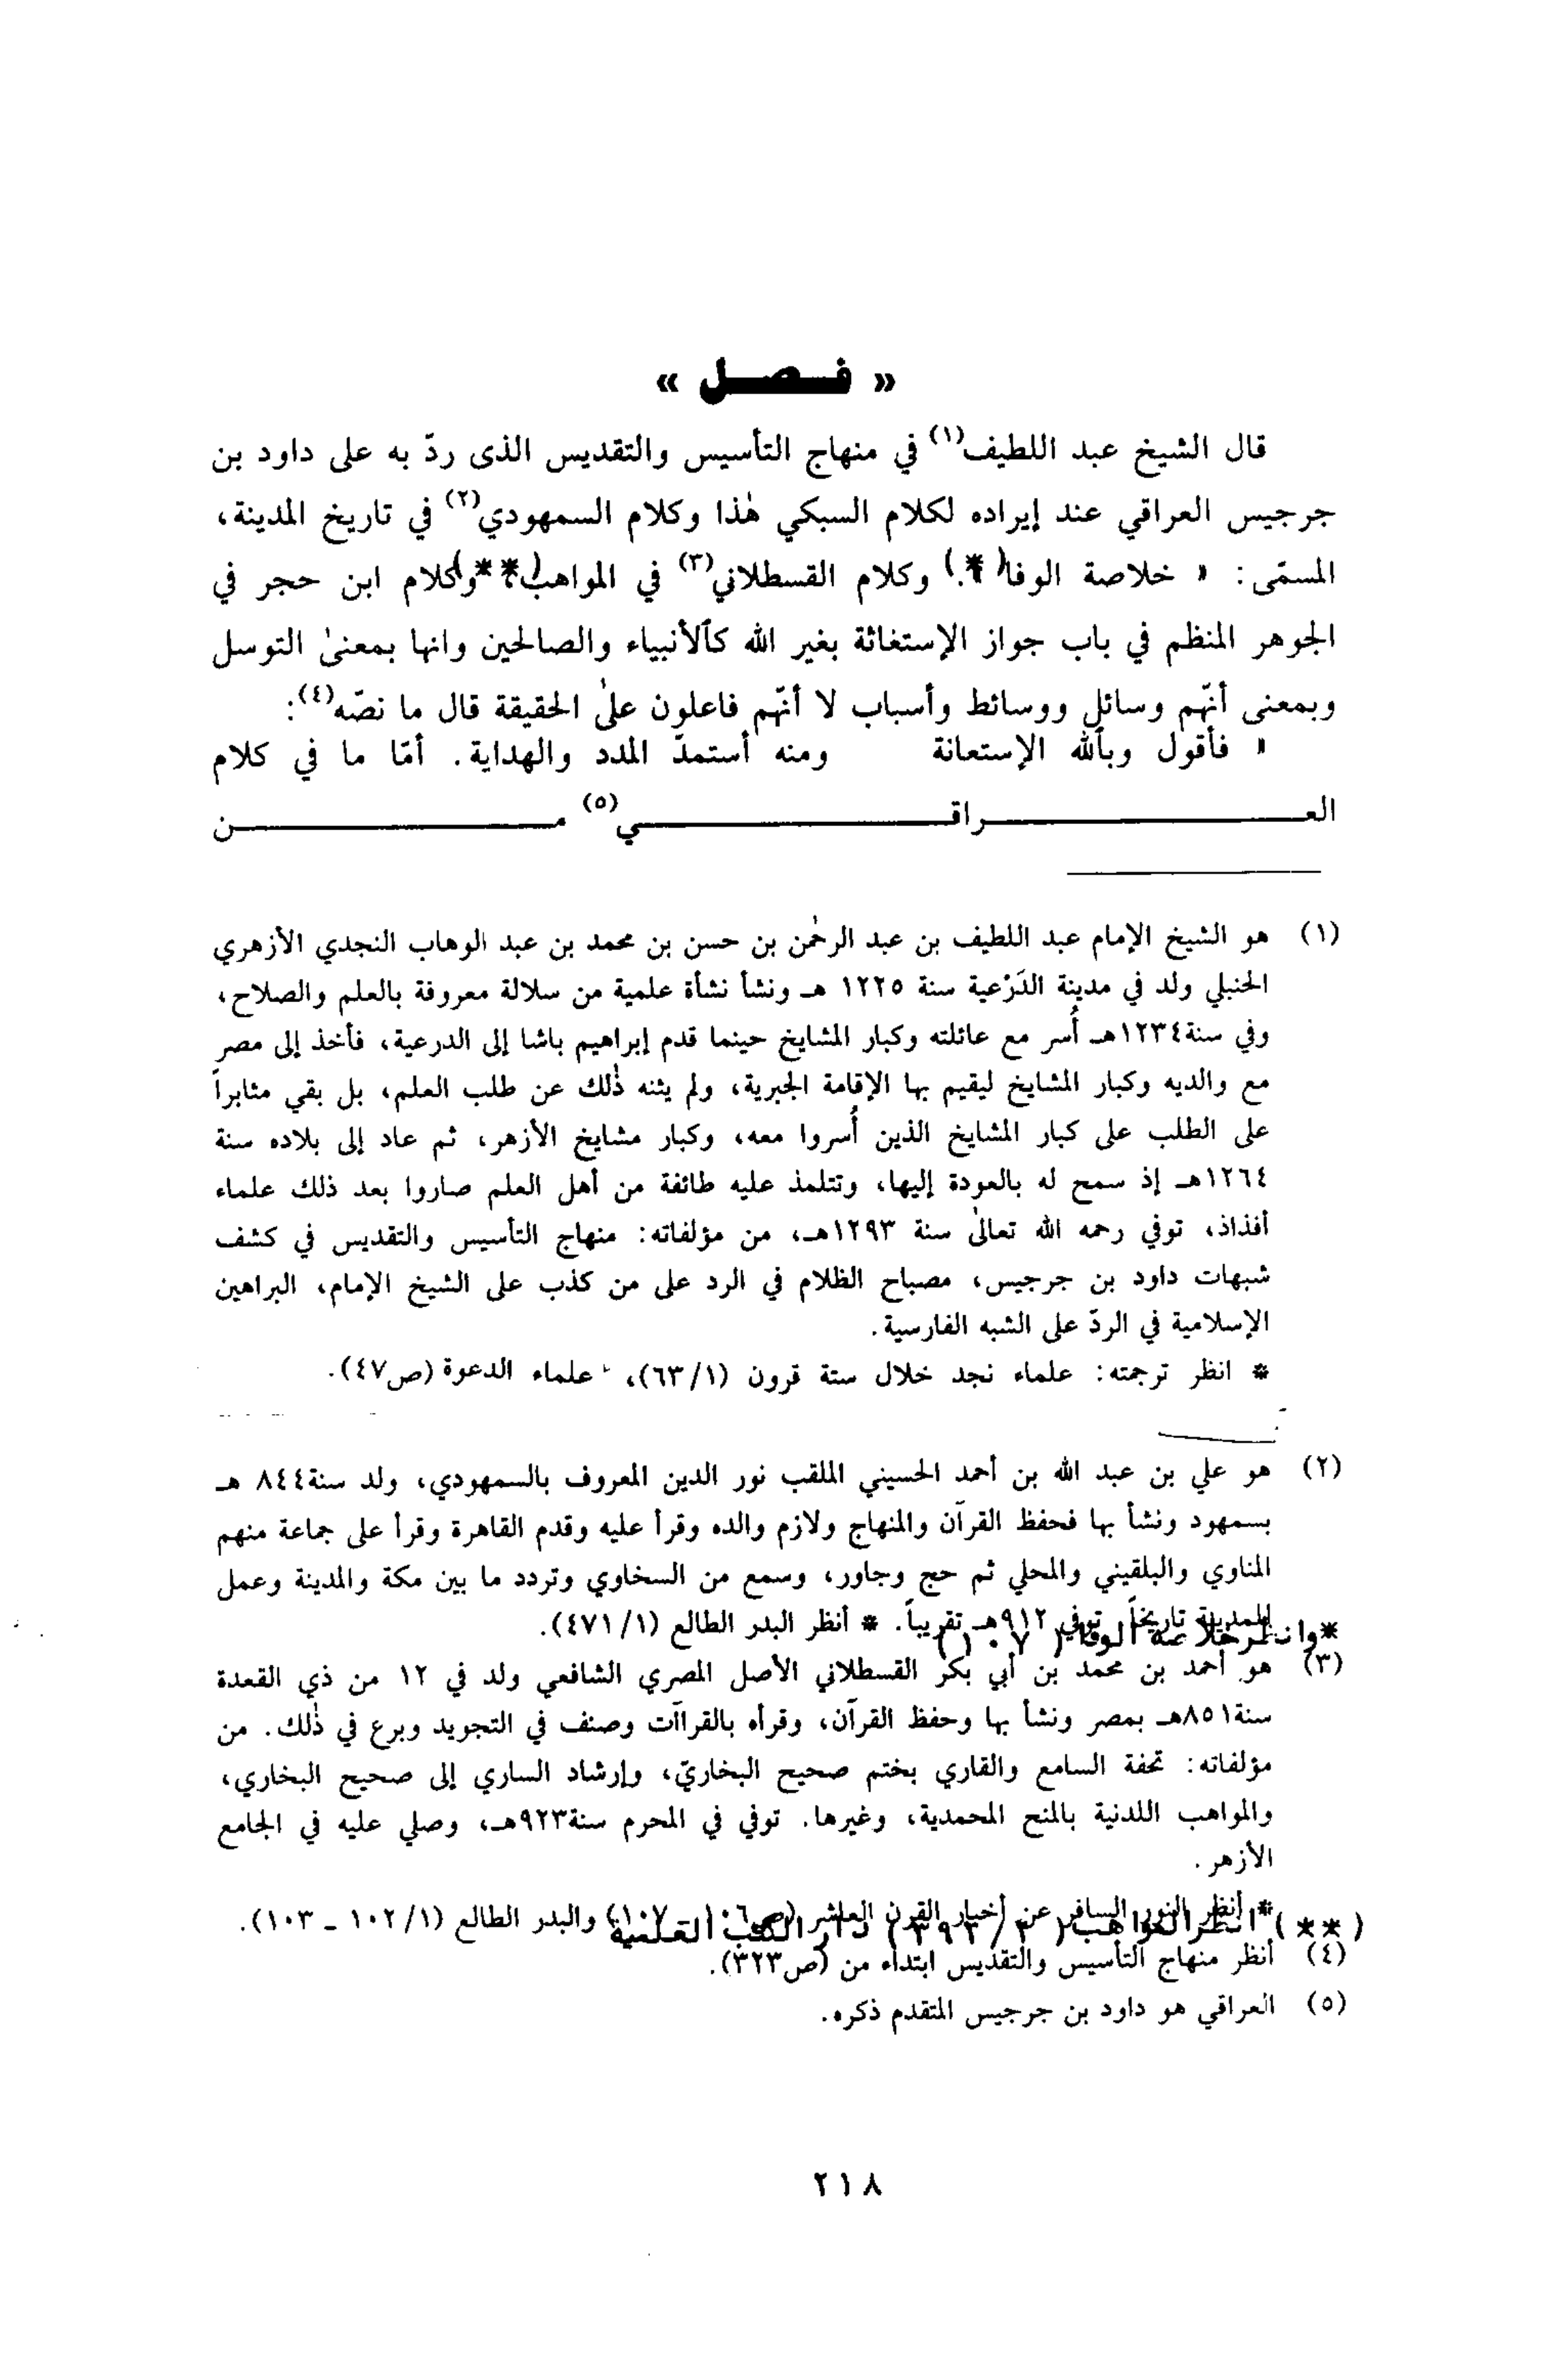 « فـصـل »
قال الشيخ عبد اللطيف(١) في منهاج التأسيس والتقديس الذى ردّ به على داود بن
جرجيس العراقي عند إيراده لكلام السبكي هٰذا وكلام السمهودي(٢) في تاريخ المدينة،
المسمّى: « خلاصة الوفا(*). وكلام القسطلاني(٣) في المواهب(**)، وكلام ابن حجر في
الجوهر المنظم في باب جواز الإستغاثة بغير الله كٱلأنبياء والصالحين وانها بمعنىٰ التوسل
وبمعنى أنّهم وسائل ووسائط وأسباب لا أنّهم فاعلون علىٰ الحقيقة قال ما نصّه(٤):
« فأقول وبٱلله الإستعانة ومنه أستمدّ المدد والهداية. أمّا ما في كلام
العـراقـي(٥) مـن
(١) هو الشيخ الإمام عبد اللطيف بن عبد الرحمٰن بن حسن بن محمد بن عبد الوهاب النجدي الأزهري
الحنبلي ولد في مدينة الدَرْعية سنة ١٢٢٥ هـ ونشأ نشأة علمية من سلالة معروفة بالعلم والصلاح،
وفي سنة١٢٣٤هـ أُسر مع عائلته وكبار المشايخ حينما قدم إبراهيم باشا إلى الدرعية، فأخذ إلى مصر
مع والديه وكبار المشايخ ليقيم بها الإقامة الجبرية، ولم يثنه ذٰلك عن طلب العلم، بل بقي مثابراً
على الطلب على كبار المشايخ الذين أُسروا معه، وكبار مشايخ الأزهر، ثم عاد إلى بلاده سنة
١٢٦٤هـ إذ سمح له بالعودة إليها، وتتلمذ عليه طائفة من أهل العلم صاروا بعد ذلك علماء
أفذاذ، توفي رحمه الله تعالىٰ سنة ١٢٩٣هـ، من مؤلفاته: منهاج التأسيس والتقديس في كشف
شبهات داود بن جرجيس، مصباح الظلام في الرد على من كذب على الشيخ الإمام، البراهين
الإسلامية في الردّ على الشبه الفارسية.
* انظر ترجمته: علماء نجد خلال ستة قرون (١/٦٣)، علماء الدعوة (ص٤٧).
(٢) هو علي بن عبد الله بن أحمد الحسيني الملقب نور الدين المعروف بالسمهودي، ولد سنة٨٤٤ هـ
بسمهود ونشأ بها فحفظ القرآن والمنهاج ولازم والده وقرأ عليه وقدم القاهرة وقرأ على جماعة منهم
المناوي والبلقيني والمحلي ثم حج وجاور، وسمع من السخاوي وتردد ما بين مكة والمدينة وعمل
للمدينة تاريخاً توفي ٩١٢هـ تقريباً. * أنظر البدر الطالع (١/٤٧١).
*وانظرخلاصة الوفا (١٠٧)
(٣) هو أحمد بن محمد بن أبي بكر القسطلاني الأصل المصري الشافعي ولد في ١٢ من ذي القعدة
سنة٨٥١هـ بمصر ونشأ بها وحفظ القرآن، وقرأه بالقراآت وصنف في التجويد وبرع في ذٰلك. من
مؤلفاته: تحفة السامع والقاري بختم صحيح البخاريّ، وإرشاد الساري إلى صحيح البخاري،
والمواهب اللدنية بالمنح المحمدية، وغيرها. توفي في المحرم سنة٩٢٣هـ، وصلي عليه في الجامع
الأزهر.
* أنظر النور السافر عن أخبار القرن العاشر (ص١٠٦ - ١٠٧) والبدر الطالع (١/١٠٢ - ١٠٣).
(**) انظر المواهب ( /٣٩٣) دار الكتب العلمية
(٤) أنظر منهاج التأسيس والتقديس ابتداء من (ص٣٢٣).
(٥) العراقي هو داود بن جرجيس المتقدم ذكره.
٢١٨